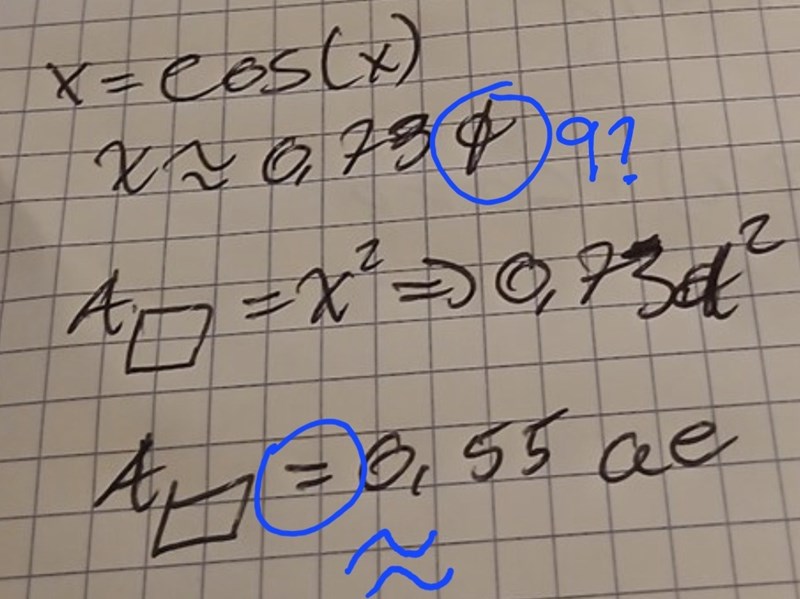 x = cos(x)
x ≈ 0,73 9?
A□ = x² => 0,73²
A□ = 0,55 ae
≈